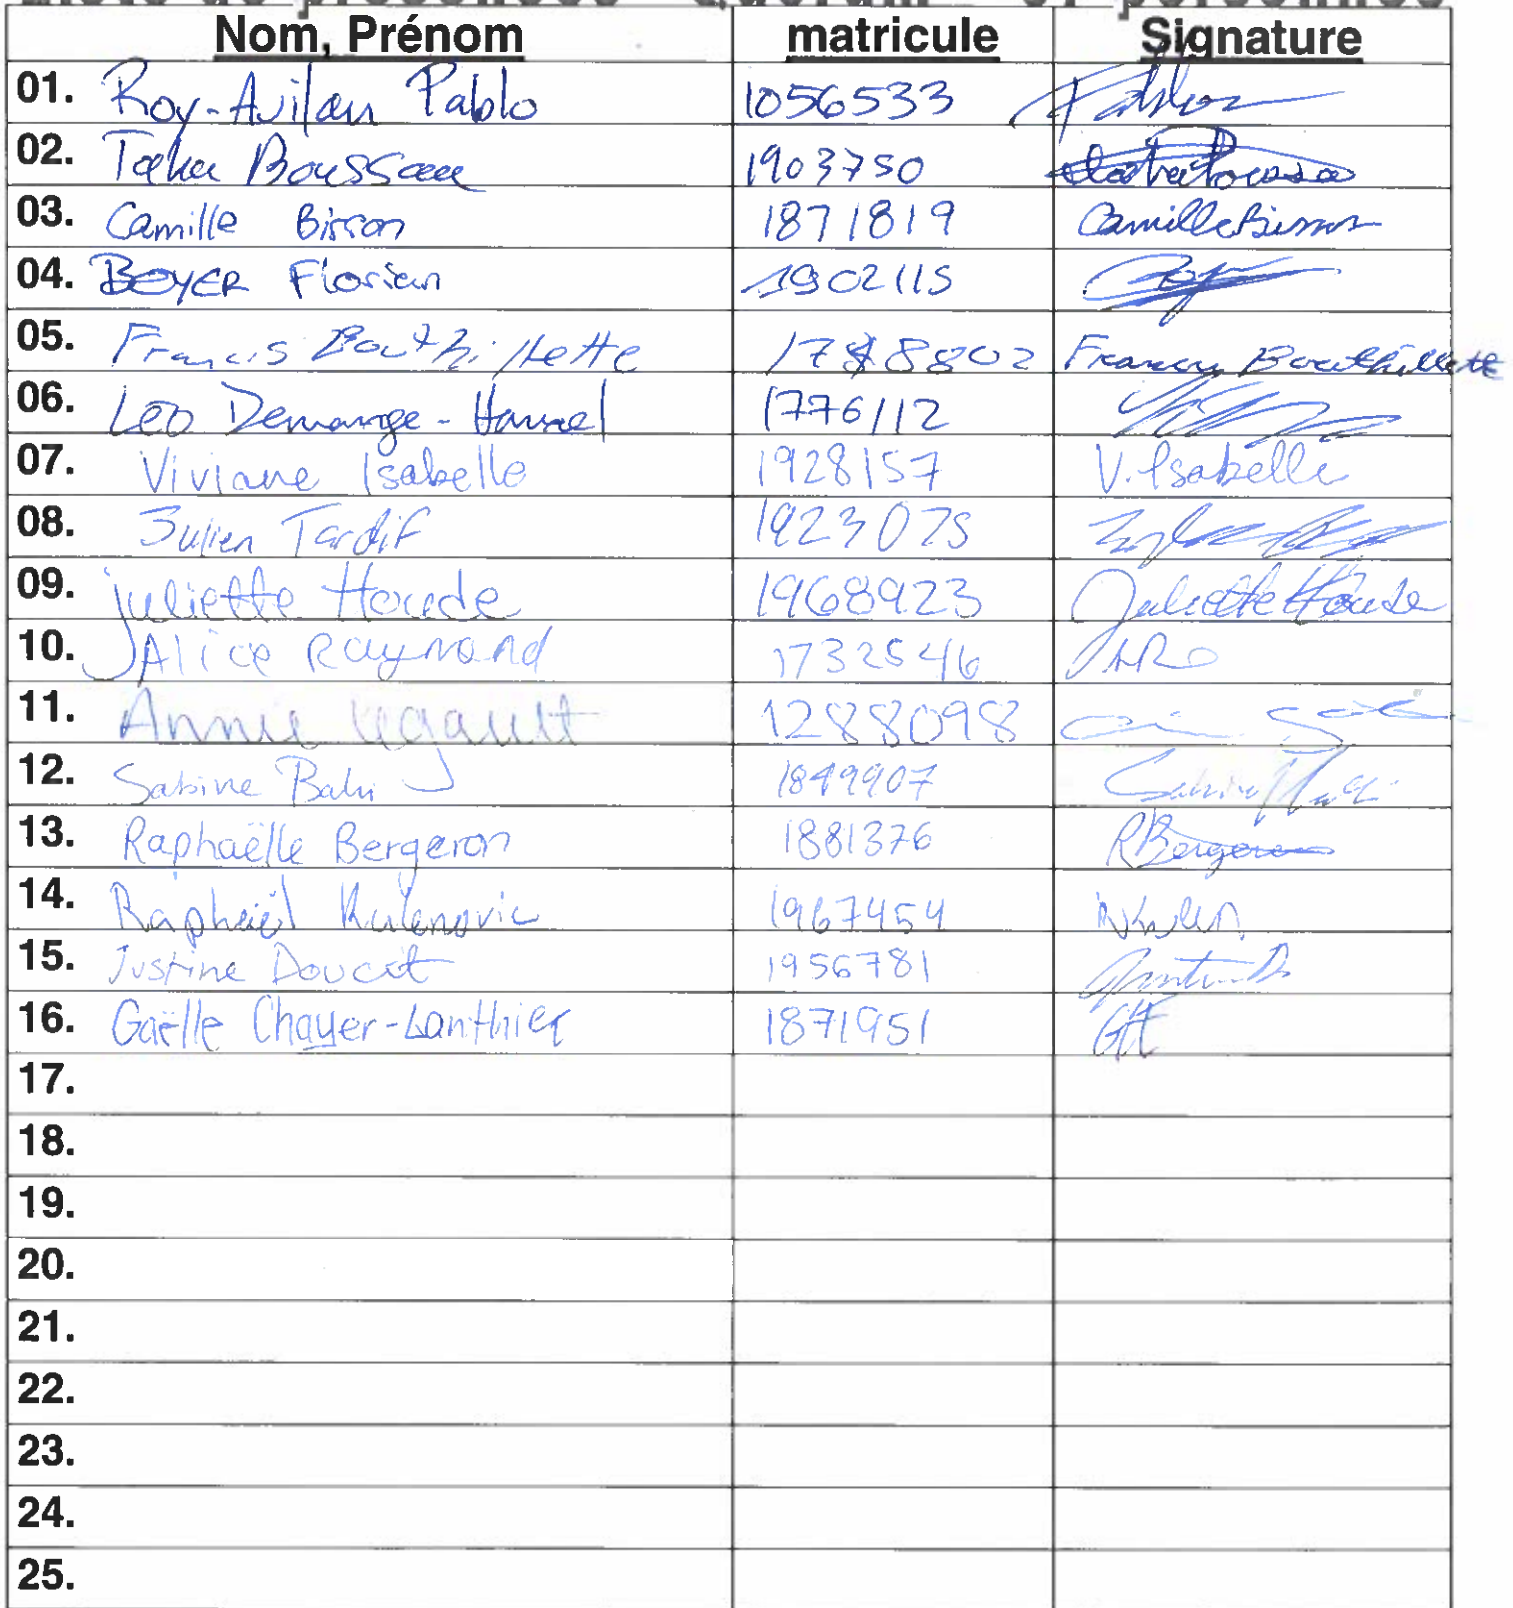 Nom, Prénom matricule Signature
01. Roy-Avilan Pablo 1056533 Pablo
02. Boussau 1903750
03. Camille Bisson 1871819 Camille Bisson
04. BOYER Florian 1902115
05. Francis Bouthillette 8802 Francis Bouthillette
06. Léo Demange-Hamel 1776112
07. Viviane Isabelle 1928157 V. Isabelle
08. Julien Tardif 1923075
09. Juliette Houde 1968923 Juliette Houde
10. Alice Raymond 1732546
11. Annie Legault 1288098
12. Sabine Bahi 1849907
13. Raphaëlle Bergeron 1881376 RBergeron
14. Raphaël Kulenovic 1967454
15. Justine Doucet 1956781
16. Gaëlle Chayer-Lanthier 1871951
17.
18.
19.
20.
21.
22.
23.
24.
25.